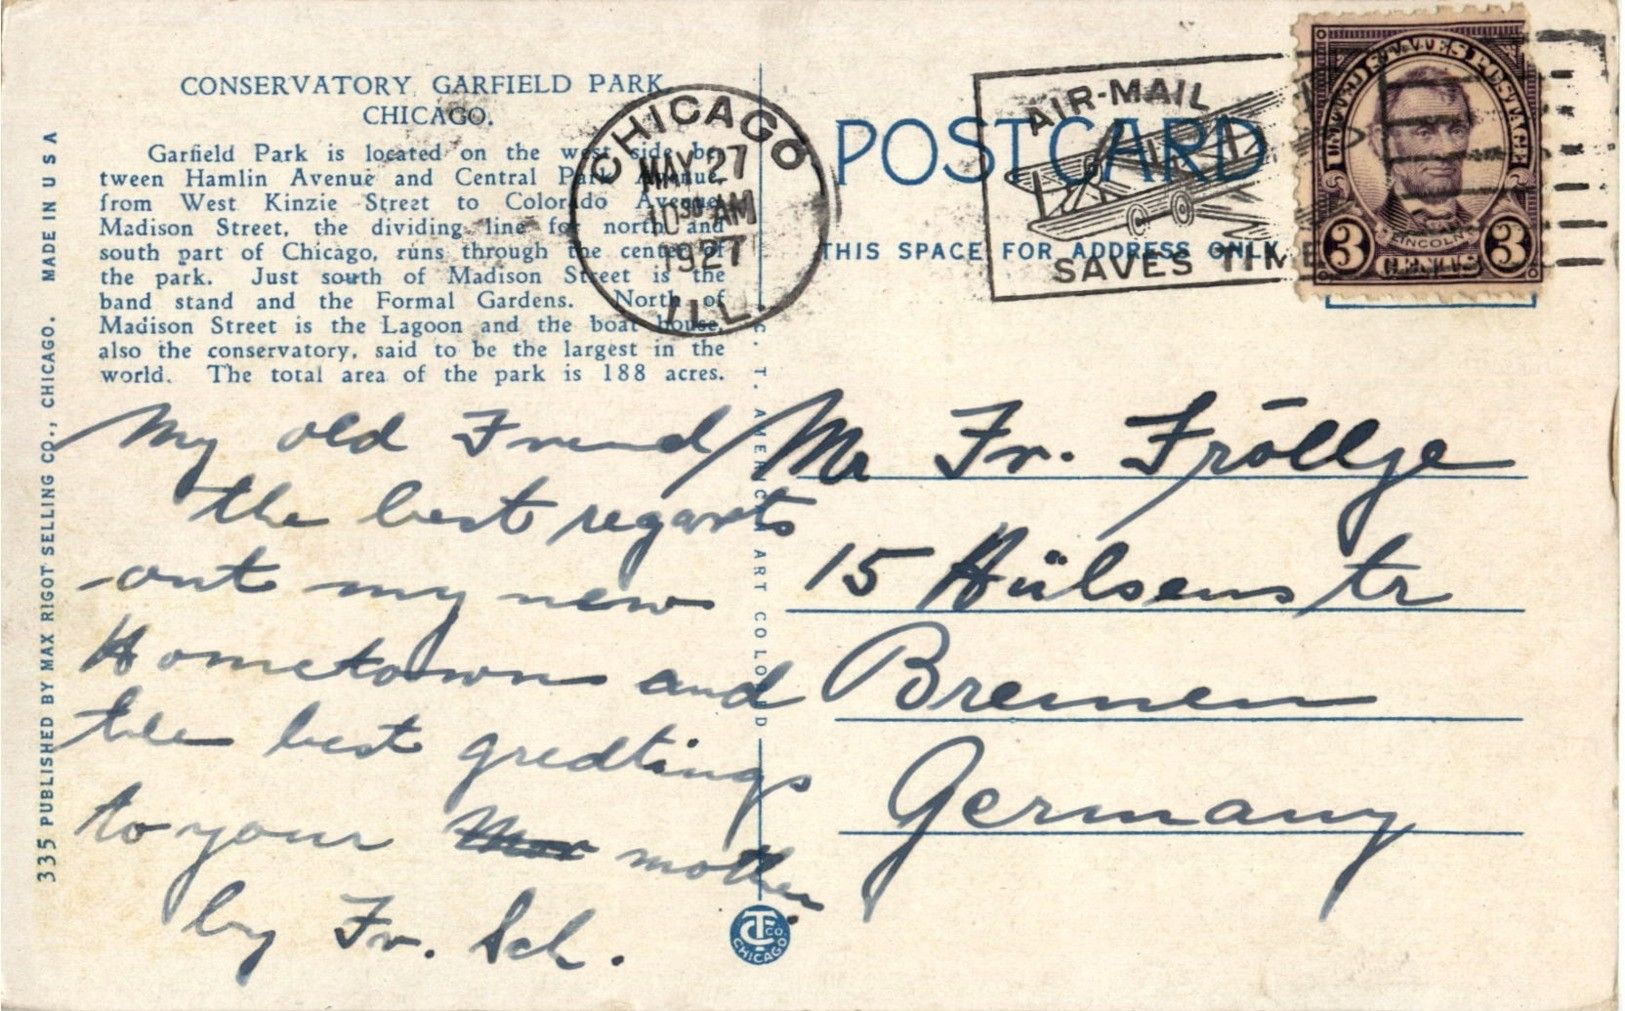 CONSERVATORY GARFIELD PARK
CHICAGO.
Garfield Park is located on the west side be-
tween Hamlin Avenue and Central Park Avenue,
from West Kinzie Street to Colorado Avenue.
Madison Street, the dividing line for north and
south part of Chicago, runs through the center of
the park. Just south of Madison Street is the
band stand and the Formal Gardens. North of
Madison Street is the Lagoon and the boat house,
also the conservatory, said to be the largest in the
world. The total area of the park is 188 acres.
335 PUBLISHED BY MAX RIGOT SELLING CO., CHICAGO. MADE IN U S A
CHICAGO
MAY 27
10 30 AM
1927
ILL.
AIR-MAIL
SAVES TIME
POSTCARD
THIS SPACE FOR ADDRESS ONLY
UNITED STATES POSTAGE
LINCOLN
3 CENTS 3
C. T. AMERICAN ART COLORED
My old Friend
the best regarts
out my new
Hometown and
the best gredtings
to your mother
by Fr. Sch.
Mr Fr. Fröllje
15 Hülsenstr
Bremen
Germany
CT CO.
CHICAGO